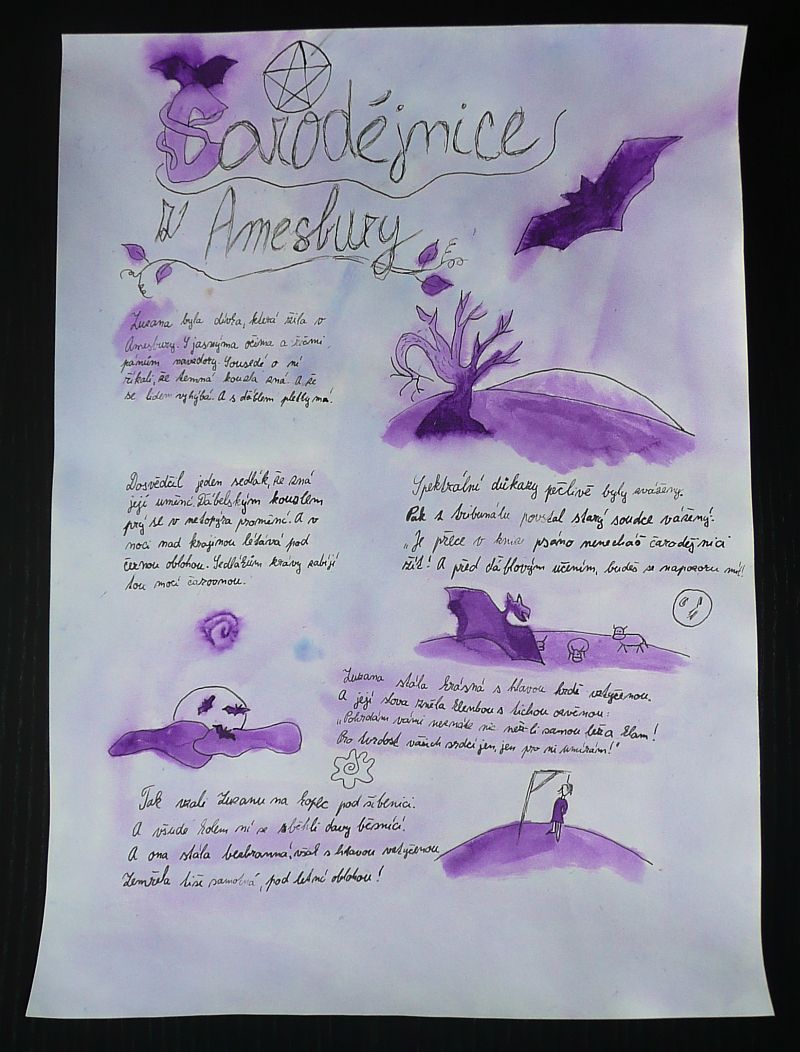 Čarodějnice
z Amesbury
Zuzana byla dívka, která žila v
Amesbury. S jasnýma očima a řečmi
pánům navzdory. Sousedé o ní
říkali, že temná kouzla zná. A že
se lidem vyhýbá. A s ďáblem pletky má.
Dosvědčil jeden sedlák, že zná
její umění. Ďábelským kouzlem
prý se v netopýra promění. A v
noci nad krajinou létává pod
černou oblohou. Sedlákům krávy zabíjí
tou mocí čarovnou.
Spektrální důkazy pečlivě byly zváženy.
Pak z tribunálu povstal starý soudce vážený.
„Je přece v knize psáno nenecháš čarodějnici
žít! A před ďáblovým učením, budeš se na pozoru mít!
Zuzana stála krásná s hlavou hrdě vztyčenou.
A její slova zněla klenbou s tichou ozvěnou:
„Pohrdám vámi neznáte nic nežli samou lež a klam!
Pro tvrdost vašich srdcí jen, jen pro ni umírám!"
Tak vzali Zuzanu na kopec pod šibenici.
A všude kolem ní se sběhli davy běsnící.
A ona stála bezbranná, však s hlavou vztyčenou
Zemřela tiše samotná, pod letní oblohou!